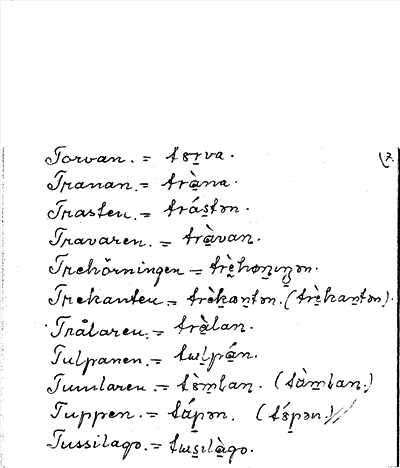 Torvan. = tɞr̲va. 7.
Tranan. = trà̲na.
Trasten. = trás̲tən.
Travaren. = trà̲van.
Trehörningen = trè̲hɞn̲ıŋən.
Trekanten. = trèk̲an̲tən. (trè̲kan̲tən).
Trålaren. = trà̲lan.
Tulpanen. = tɯl̲pá̲n.
Tumlaren. = tòm̲lan. (tàm̲lan.)
Tuppen. = táp̲ən. (tóp̲ən.)
Tussilago. = tɯs̲ılà̲go.